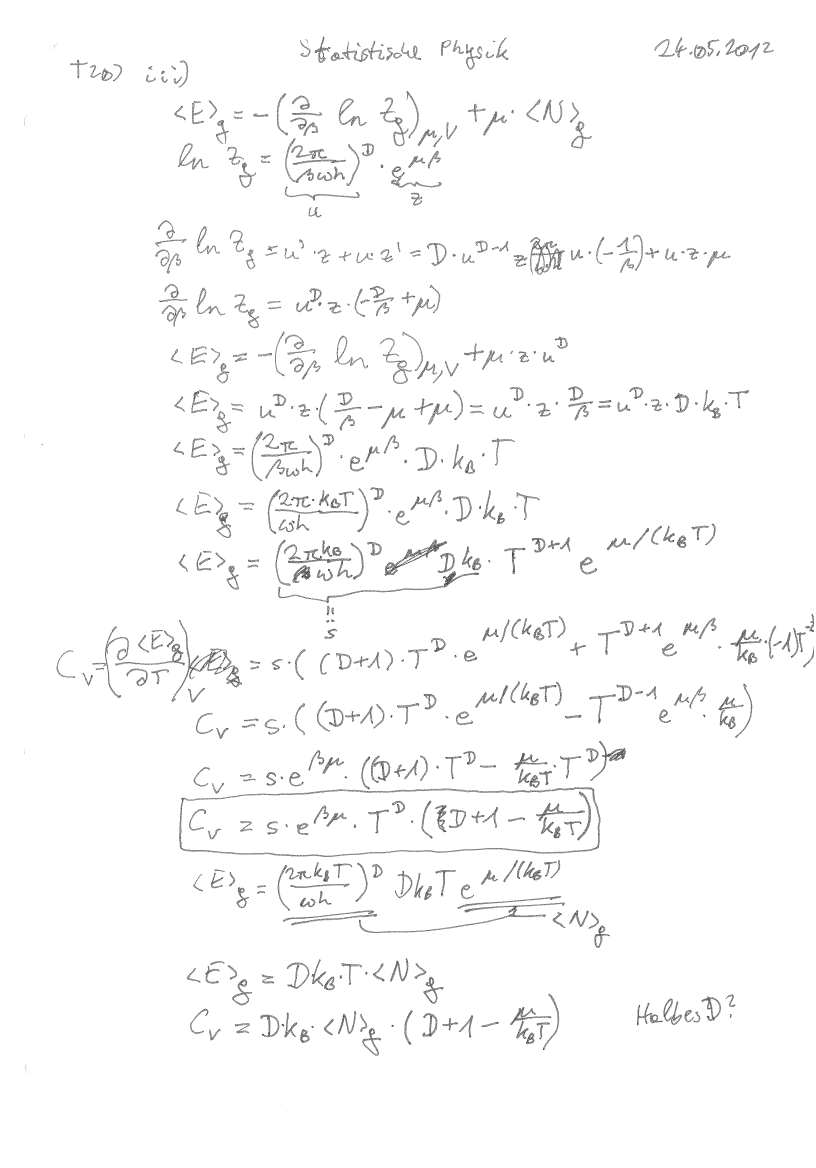 Statistische Physik 24.05.2012
T20) iii)
<E>_g = -(∂/∂β ln Z_g)_{μ,V} + μ · <N>_g
ln Z_g = (2π/(βωh))^D · e^{μβ}
u z
∂/∂β ln Z_g = u' · z + u · z' = D · u^{D-1} z u · (-1/β) + u · z · μ
∂/∂β ln Z_g = u^D · z · (-D/β + μ)
<E>_g = -(∂/∂β ln Z_g)_{μ,V} + μ · z · u^D
<E>_g = u^D · z · (D/β - μ + μ) = u^D · z · D/β = u^D · z · D · k_B · T
<E>_g = (2π/(βωh))^D · e^{μβ} · D · k_B · T
<E>_g = (2π · k_B T/(ωh))^D · e^{μβ} · D · k_B · T
<E>_g = (2πk_B/(ωh))^D D k_B · T^{D+1} e^{μ/(k_B T)}
=: s
C_V = (∂<E>_g/∂T)_V = s · ((D+1) · T^D · e^{μ/(k_B T)} + T^{D+1} e^{μβ} · μ/k_B · (-1) T^{-2})
C_V = s · ((D+1) · T^D · e^{μ/(k_B T)} - T^{D-1} e^{μβ} · μ/k_B)
C_V = s · e^{βμ} · ((D+1) · T^D - μ/(k_B T) · T^D)
C_V = s · e^{βμ} · T^D · (D+1 - μ/(k_B T))
<E>_g = (2πk_B T/(ωh))^D D k_B T e^{μ/(k_B T)}
<N>_g
<E>_g = D k_B · T · <N>_g
C_V = D · k_B · <N>_g · (D+1 - μ/(k_B T)) Halbes D?